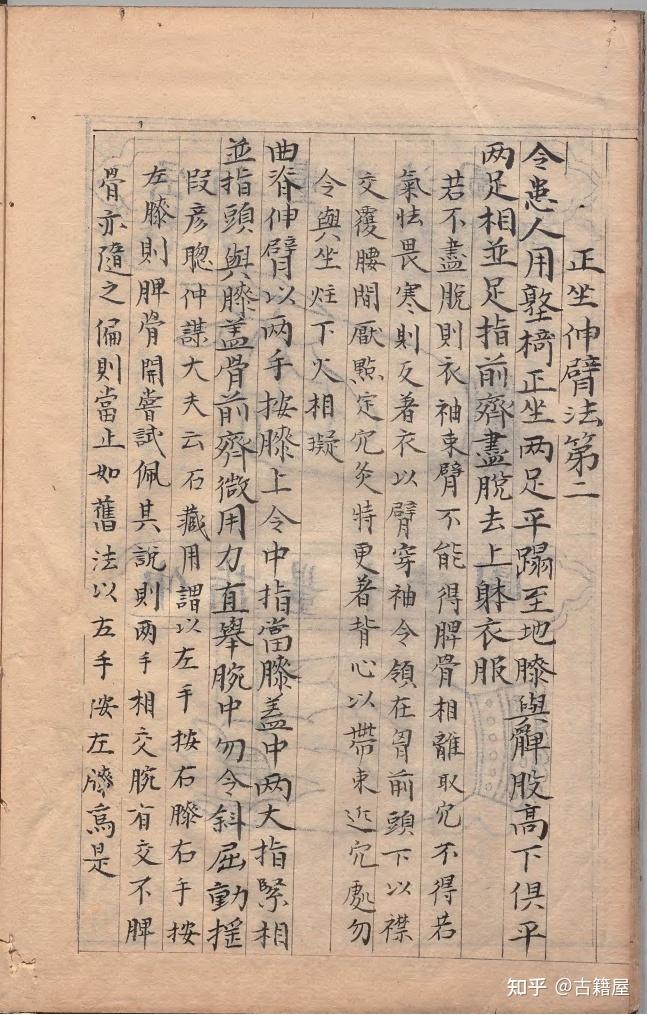 正坐伸臂法第二
令患人用墪椅正坐两足平蹋至地膝與髀股高下俱平
两足相並足指前齊盡脱去上躰衣服
若不盡脱則衣袖束臂不能得脾骨相離取穴不得若
氣怯畏寒則反著衣以臂穿袖令領在胷前頭下以襟
交覆腰間厭點定穴灸時更著背心以帶束近穴處勿
令與坐炷下火相礙
曲脊伸臂以两手按膝上令中指當膝盖中两大指緊相
並指頭與膝盖骨前齊微用力直舉腕中勿令斜屈動摇
叚彦聰仲謀大夫云石藏用謂以左手按右膝右手按
左膝則脾骨開嘗試佩其説則两手相交腕有交不脾
骨亦隨之偏則當止如舊法以右手按左膝為是
知乎 @古籍屋